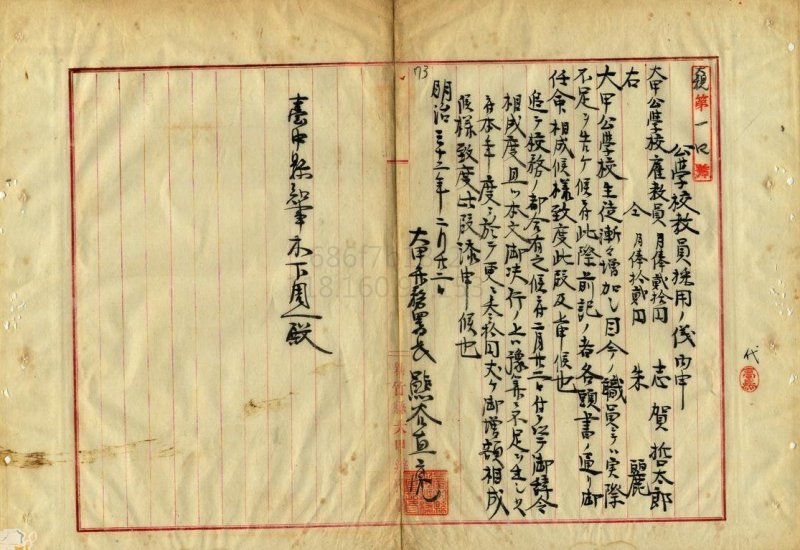 第一口號
公學校教員採用ノ儀内申
大甲公學校雇教員 月俸貳拾円 志賀哲太郎
仝 月俸拾貳円 朱麗
右
大甲公學校生徒漸々増加シ目今ノ職員ニテハ実際
不足ヲ告ケ候ニ付此際前記ノ者各頭書ノ通リ御
任命相成候様致度此段及上申候也
追テ校務ノ都合有之候ニ付二月廿二日付ヲ以テ御辞令
相成度且ツ本文御決行ノ上ハ豫算ニ不足ヲ生シ候ニ
付本年度ニ於テ更ニ参拾円丈ケ御増額相成
候様致度此段添申候也
明治三十三年二月廿二日
大甲弁務署長 熊谷直亮
臺中縣知事木下周一殿
代
73